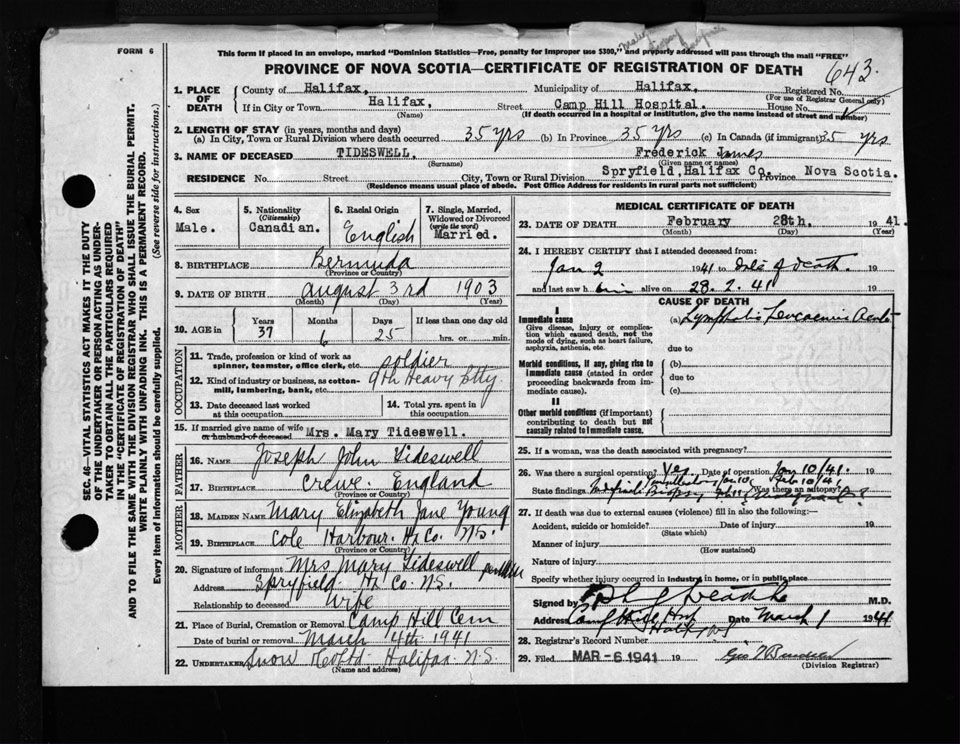 FORM 6
This form if placed in an envelope, marked "Dominion Statistics—Free, penalty for improper use $300," and properly addressed will pass through the mail "FREE"
PROVINCE OF NOVA SCOTIA—CERTIFICATE OF REGISTRATION OF DEATH
643
1. PLACE OF DEATH
County of Halifax, Municipality of Halifax, Registered No.
(For use of Registrar General only)
If in City or Town Halifax, Street Camp Hill Hospital. House No.
(Name) (If death occurred in a hospital or institution, give the name instead of street and number)
2. LENGTH OF STAY (in years, months and days)
(a) In City, Town or Rural Division where death occurred 35 yrs (b) In Province 35 yrs (c) In Canada (if immigrant) 35 yrs
3. NAME OF DECEASED TIDESWELL, Frederick James
(Surname) (Given name or names)
RESIDENCE No. Street City, Town or Rural Division Spryfield, Halifax Co. Province Nova Scotia.
(Residence means usual place of abode. Post Office Address for residents in rural parts not sufficient)
4. Sex
Male.
5. Nationality
(Citizenship)
Canadian.
6. Racial Origin
English
7. Single, Married, Widowed or Divorced
(write the word)
Married.
8. BIRTHPLACE Bermuda
(Province or Country)
9. DATE OF BIRTH August 3rd 1903
(Month) (Day) (Year)
10. AGE in
Years Months Days If less than one day old
37 6 25 hrs. or min.
OCCUPATION
11. Trade, profession or kind of work as spinner, teamster, office clerk, etc. soldier
12. Kind of industry or business, as cotton-mill, lumbering, bank, etc. 9th Heavy Btty.
13. Date deceased last worked at this occupation
14. Total yrs. spent in this occupation
15. If married give name of wife or husband of deceased Mrs. Mary Tideswell.
FATHER
16. Name Joseph John Tideswell
17. Birthplace Crewe, England
MOTHER
18. Maiden Name Mary Elizabeth Jane Young
19. Birthplace Cole Harbour. Hx Co. N.S.
(Province or Country)
20. Signature of informant Mrs Mary Tideswell
Address Spryfield Hx Co. N.S.
Relationship to deceased Wife
21. Place of Burial, Cremation or Removal Camp Hill Cem
Date of burial or removal March 4th 1941
22. UNDERTAKER Snow & Co Ltd. Halifax. N.S.
(Name and address)
MEDICAL CERTIFICATE OF DEATH
23. DATE OF DEATH February 28th. 1941.
(Month) (Day) (Year)
24. I HEREBY CERTIFY that I attended deceased from:
Jan 2 1941 to date of death. 19
and last saw him alive on 28.2.41 19
CAUSE OF DEATH
I
Immediate cause
Give disease, injury or complication which caused death, not the mode of dying, such as heart failure, asphyxia, asthenia, etc.
(a) Lymphatic Leucaemia Acute
due to
Morbid conditions, if any, giving rise to immediate cause (stated in order proceeding backwards from immediate cause).
(b)
due to
(c)
II
Other morbid conditions (if important) contributing to death but not causally related to immediate cause.
25. If a woman, was the death associated with pregnancy?
26. Was there a surgical operation? Yes. Date of operation Jan 10/41.
Feb 10/41
State findings Biopsy Was there an autopsy?
27. If death was due to external causes (violence) fill in also the following:—
Accident, suicide or homicide? Date of injury 19
(State which)
Manner of injury
(How sustained)
Nature of injury
Specify whether injury occurred in industry, in home, or in public place
Signed by M.D.
Address Camp Hill Hosp Date March 1 1941
Halifax
28. Registrar's Record Number
29. Filed MAR -6 1941 19
(Division Registrar)
SEC. 46—VITAL STATISTICS ACT MAKES IT THE DUTY OF THE UNDERTAKER OR PERSON ACTING AS UNDERTAKER TO OBTAIN ALL THE PARTICULARS REQUIRED IN THE "CERTIFICATE OF REGISTRATION OF DEATH" AND TO FILE THE SAME WITH THE DIVISION REGISTRAR WHO SHALL ISSUE THE BURIAL PERMIT.
WRITE PLAINLY WITH UNFADING INK. THIS IS A PERMANENT RECORD.
Every item of information should be carefully supplied. (See reverse side for instructions.)